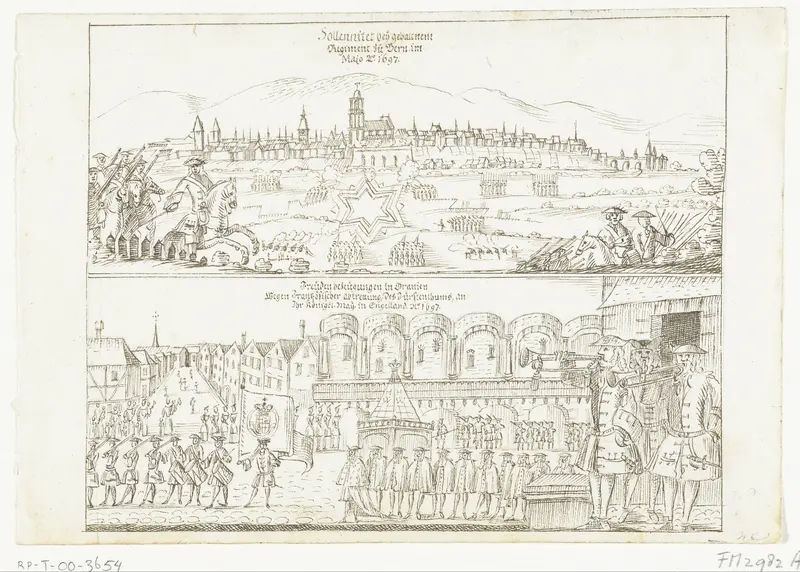 Sollennitet beÿ gehaltnem
Regiment zu Bern im
Majo Aº. 1697.
Freüdenbezeügungen in Oranien
Wegen Frantzösischer abtrettung des Fürstenthums, an
Ihr Königl: Maÿ: in Engelland Aº. 1697.
RP-T-00-3654
FM2982 A